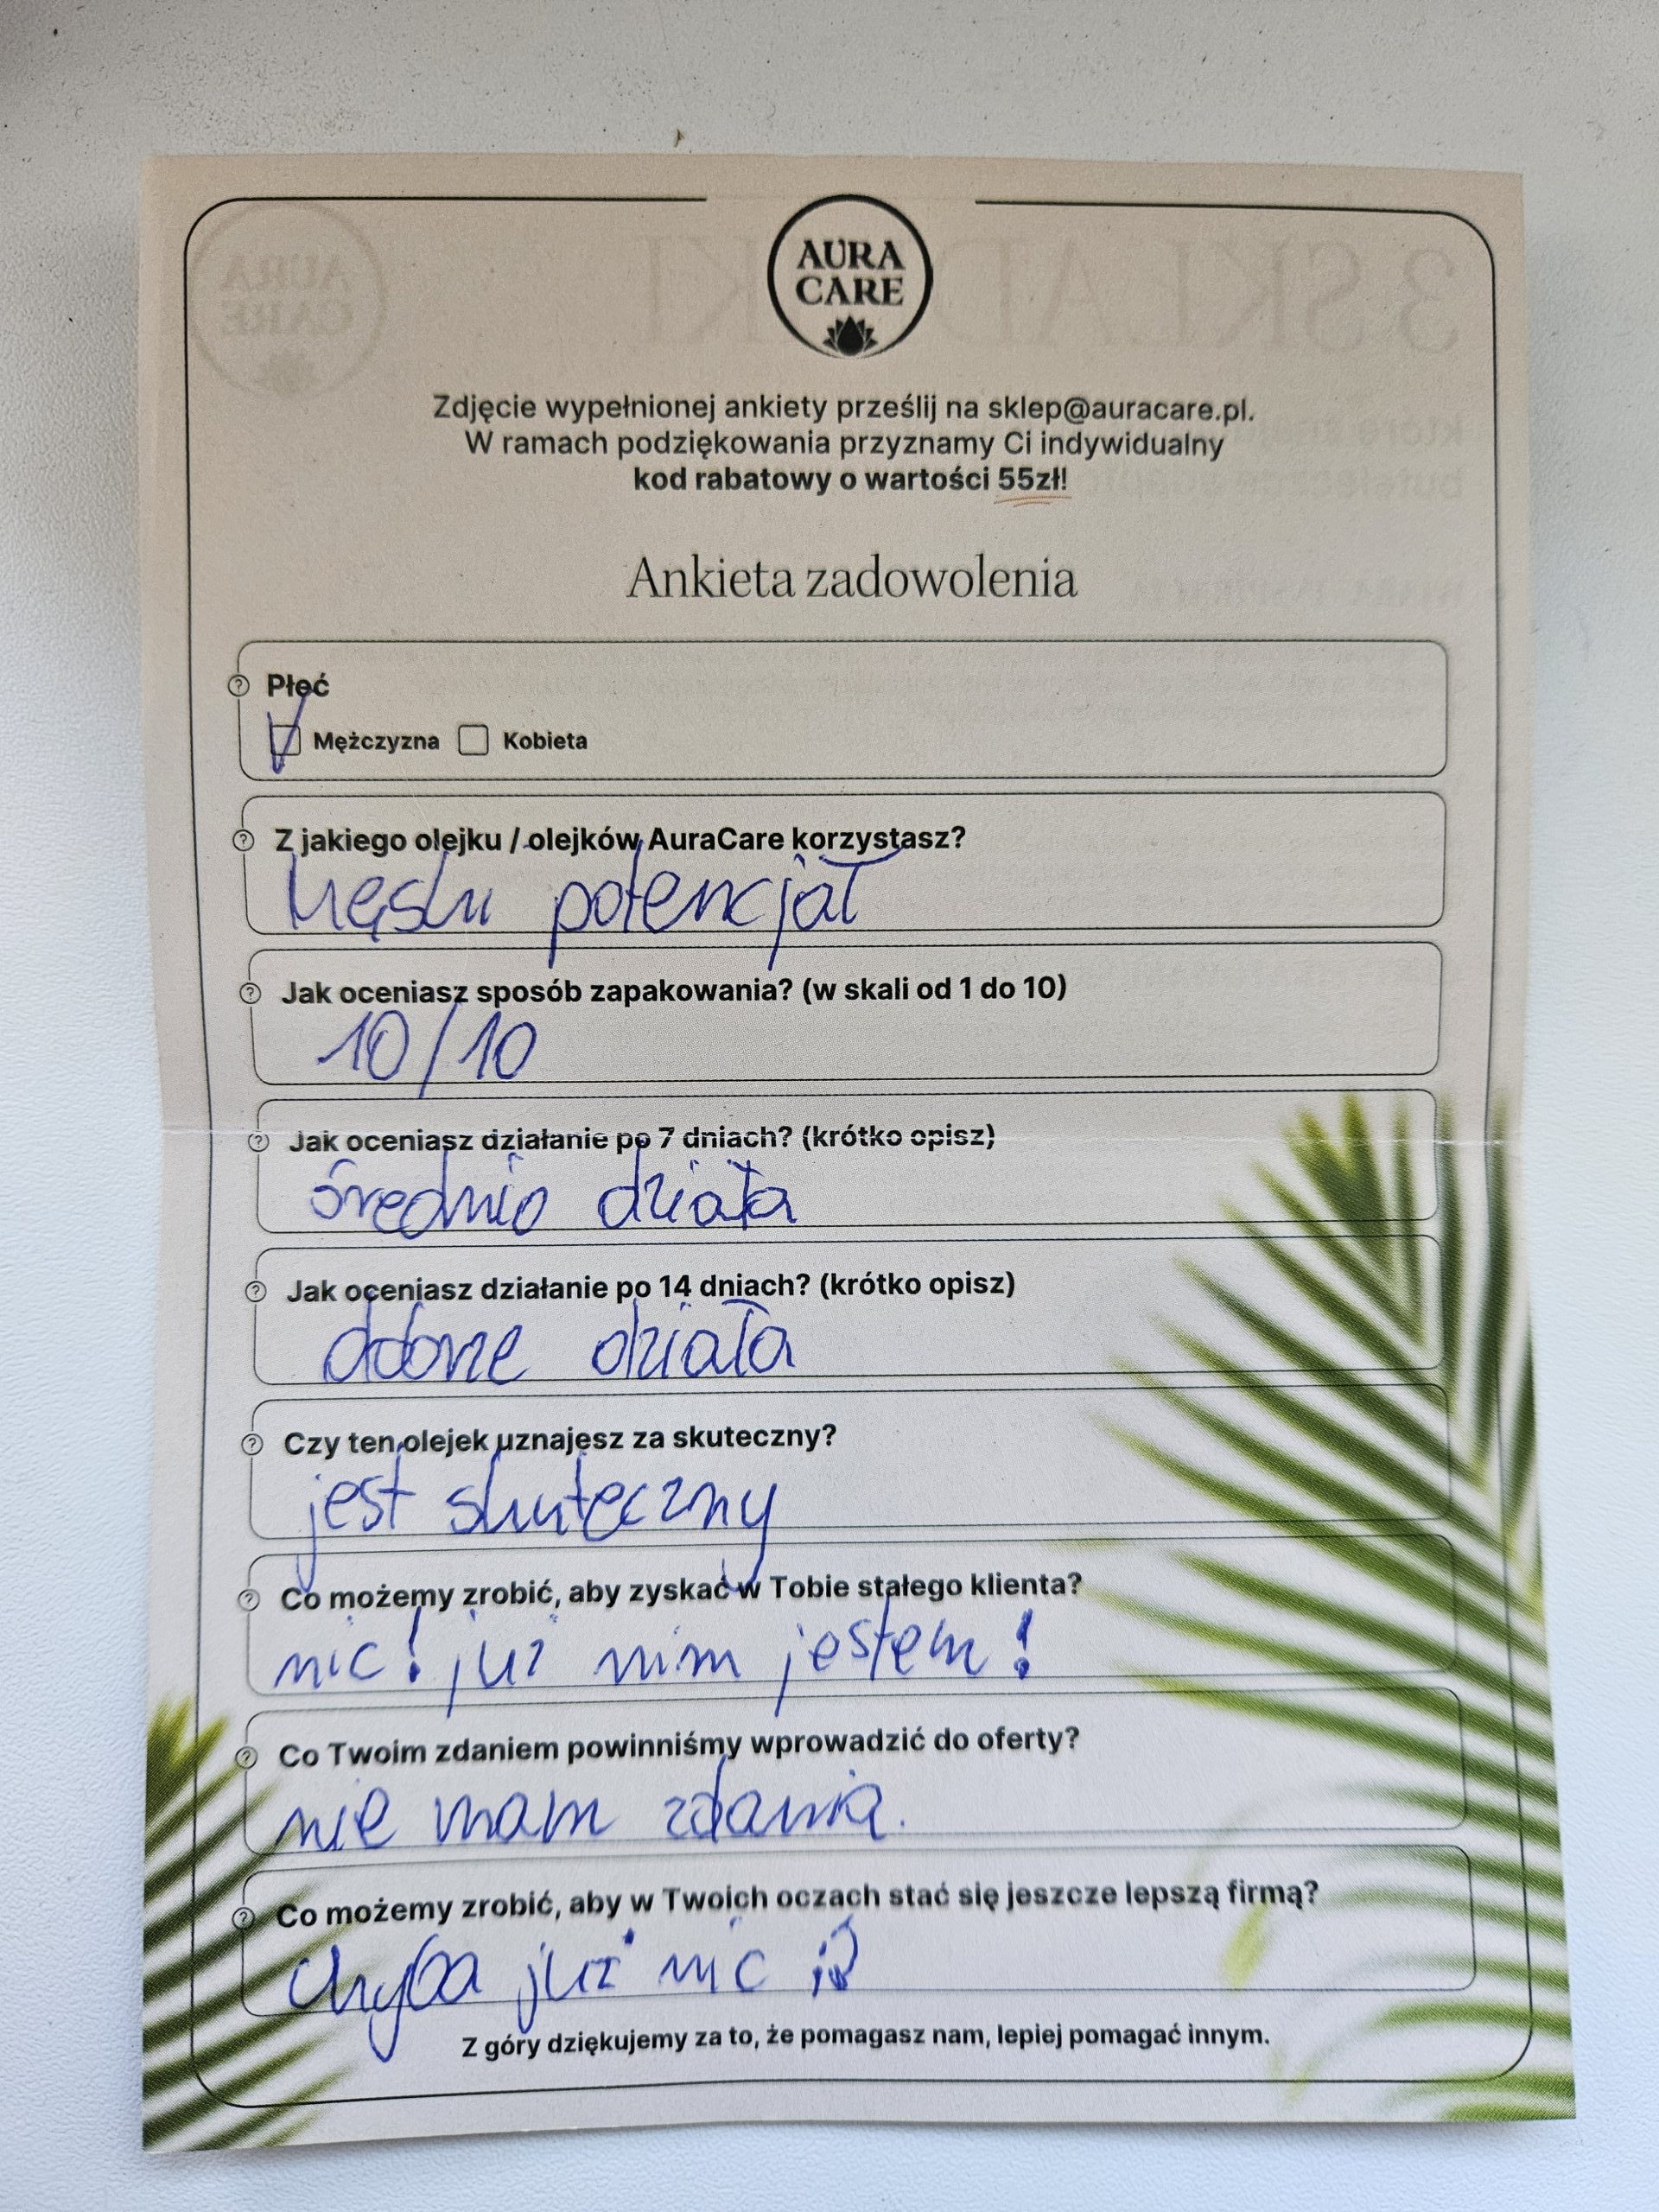 AURA
CARE
Zdjęcie wypełnionej ankiety prześlij na sklep@auracare.pl.
W ramach podziękowania przyznamy Ci indywidualny
kod rabatowy o wartości 55zł!
Ankieta zadowolenia
Płeć
Mężczyzna Kobieta
Z jakiego olejku / olejków AuraCare korzystasz?
Męski potencjał
Jak oceniasz sposób zapakowania? (w skali od 1 do 10)
10/10
Jak oceniasz działanie po 7 dniach? (krótko opisz)
średnio działa
Jak oceniasz działanie po 14 dniach? (krótko opisz)
dobrze działa
Czy ten olejek uznajesz za skuteczny?
jest skuteczny
Co możemy zrobić, aby zyskać w Tobie stałego klienta?
nic! już nim jestem!
Co Twoim zdaniem powinniśmy wprowadzić do oferty?
nie mam zdania.
Co możemy zrobić, aby w Twoich oczach stać się jeszcze lepszą firmą?
Chyba już nic ;)
Z góry dziękujemy za to, że pomagasz nam, lepiej pomagać innym.